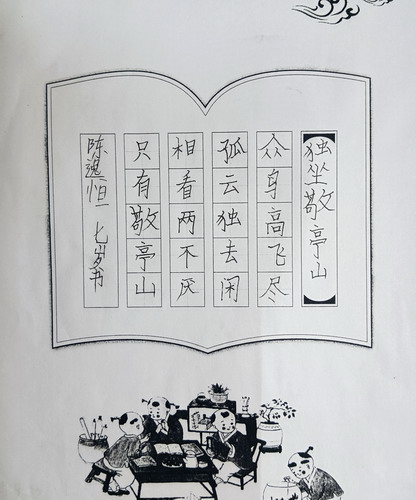 独坐敬亭山
众鸟高飞尽
孤云独去闲
相看两不厌
只有敬亭山
陈逸恒 七岁书